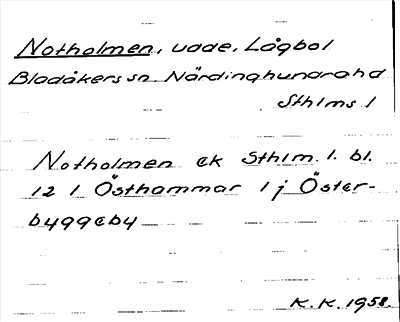 Notholmen, udde, Lågbol
Bladåkers sn Närdinghundra hd
Sthlms l
Notholmen ek Sthlm. l. bl.
12 l Östhammar l j Öster-
byggeby
K.K. 1958.